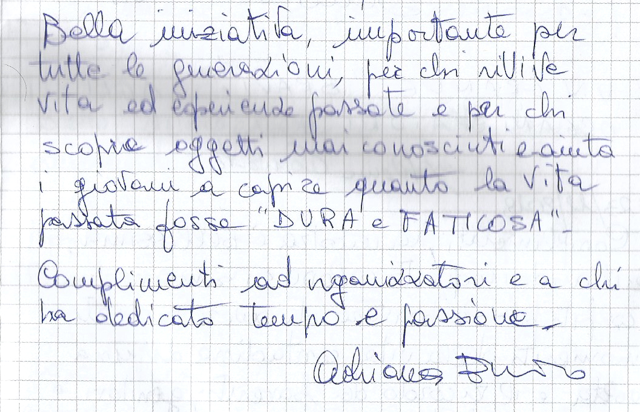 Bella iniziativa, importante per
tutte le generazioni, per chi rivive
vita ed esperienze passate e per chi
scopre oggetti mai conosciuti e aiuta
i giovani a capire quanto la vita
passata fosse "DURA e FATICOSA"-
Complimenti ad organizzatori e a chi
ha dedicato tempo e passione-
Adriana